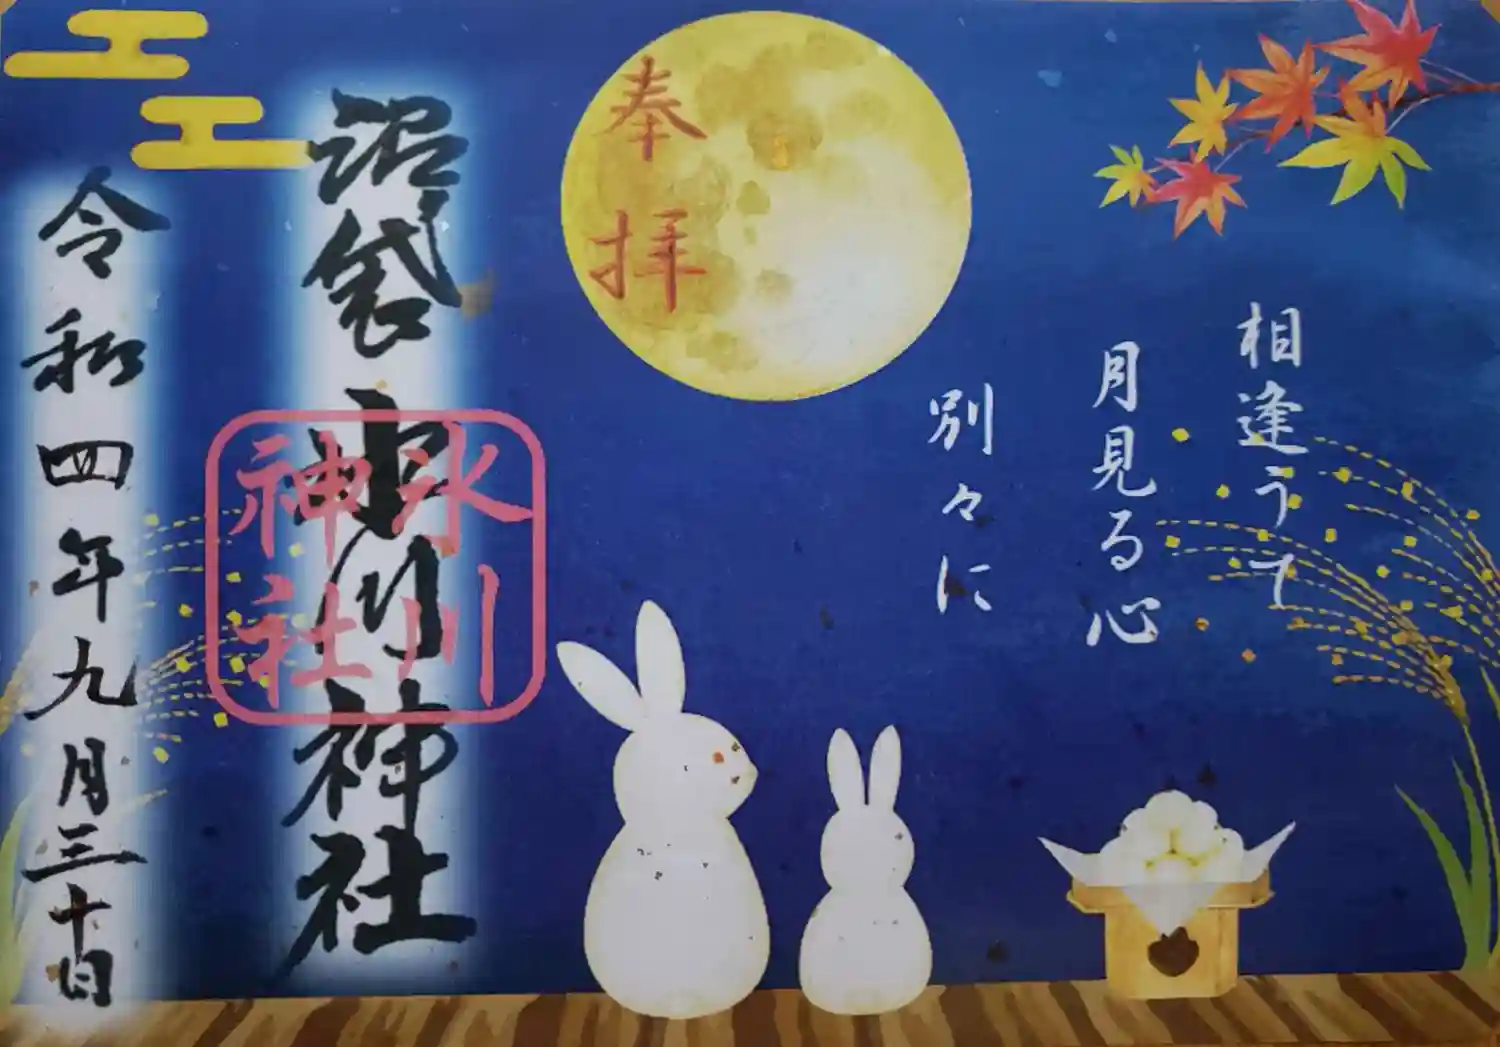 相逢うて
月見る心
別々に
奉拝
沼袋氷川神社
氷川
神社
令和四年九月三十日